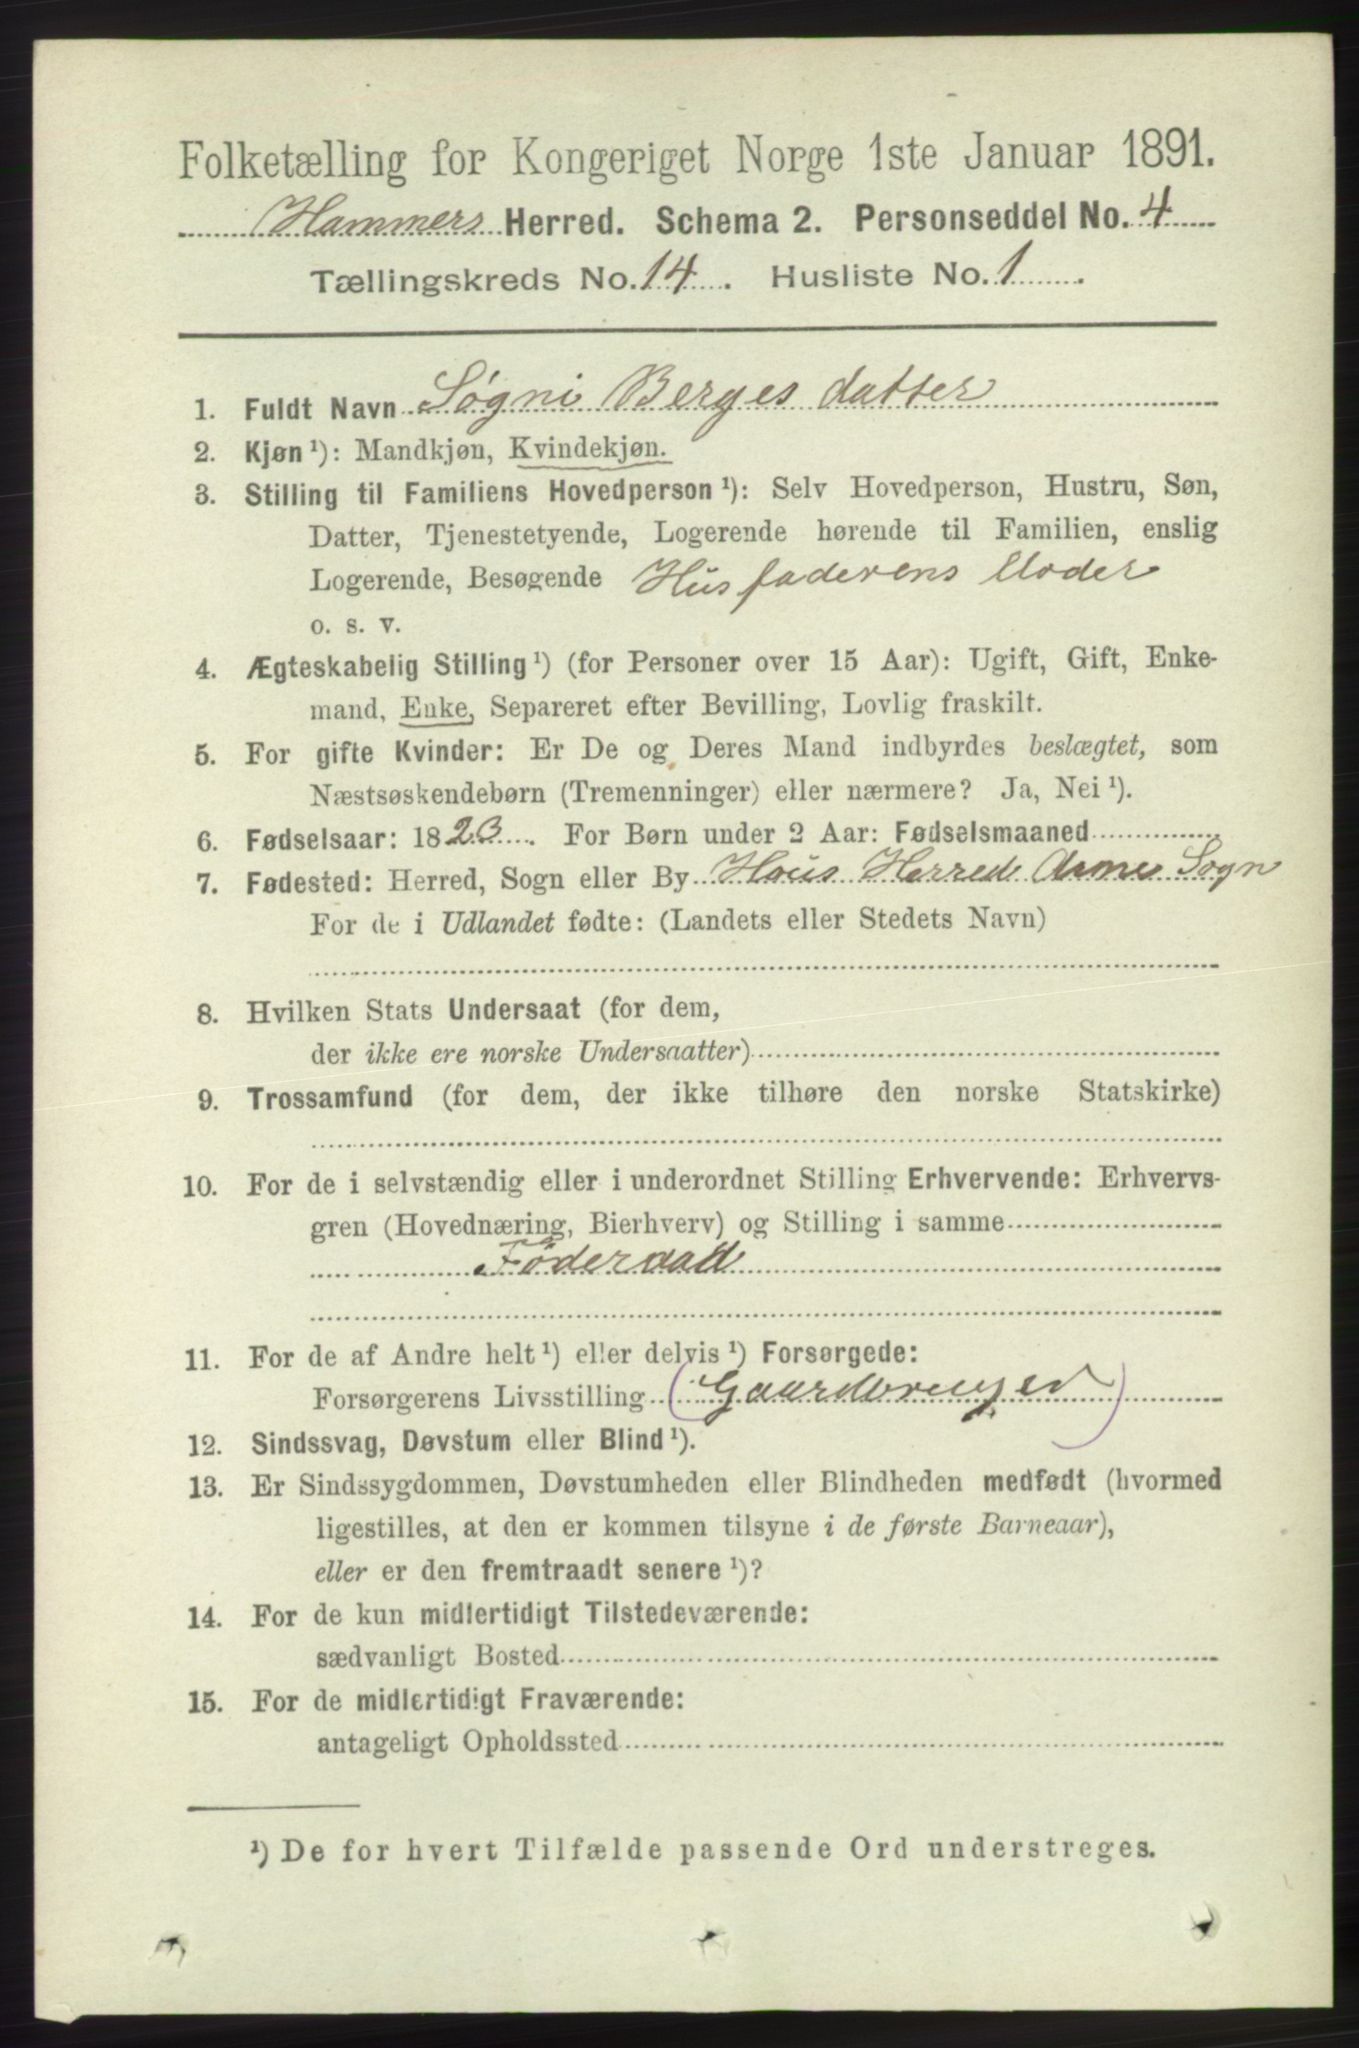 Folketælling for Kongeriget Norge 1ste Januar 1891.
Hammers Herred. Schema 2. Personseddel No. 4
Tællingskreds No. 14. Husliste No. 1.
1. Fuldt Navn Søgni Berges datter
2. Kjøn ¹): Mandkjøn, Kvindekjøn.
3. Stilling til Familiens Hovedperson ¹): Selv Hovedperson, Hustru, Søn,
Datter, Tjenestetyende, Logerende hørende til Familien, enslig
Logerende, Besøgende Husfaderens Moder
o. s. v.
4. Ægteskabelig Stilling ¹) (for Personer over 15 Aar): Ugift, Gift, Enke-
mand, Enke, Separeret efter Bevilling, Lovlig fraskilt.
5. For gifte Kvinder: Er De og Deres Mand indbyrdes beslægtet, som
Næstsøskendebørn (Tremenninger) eller nærmere? Ja, Nei ¹).
6. Fødselsaar: 1823. For Børn under 2 Aar: Fødselsmaaned
7. Fødested: Herred, Sogn eller By Hous Herred Arne Sogn
For de i Udlandet fødte: (Landets eller Stedets Navn)
8. Hvilken Stats Undersaat (for dem,
der ikke ere norske Undersaatter)
9. Trossamfund (for dem, der ikke tilhøre den norske Statskirke)
10. For de i selvstændig eller i underordnet Stilling Erhvervende: Erhvervs-
gren (Hovednæring, Bierhverv) og Stilling i samme
Föderaad
11. For de af Andre helt ¹) eller delvis ¹) Forsørgede:
Forsørgerens Livsstilling (Gaardbruger)
12. Sindssvag, Døvstum eller Blind ¹).
13. Er Sindssygdommen, Døvstumheden eller Blindheden medfødt (hvormed
ligestilles, at den er kommen tilsyne i de første Barneaar),
eller er den fremtraadt senere ¹)?
14. For de kun midlertidigt Tilstedeværende:
sædvanligt Bosted
15. For de midlertidigt Fraværende:
antageligt Opholdssted
¹) De for hvert Tilfælde passende Ord understreges.